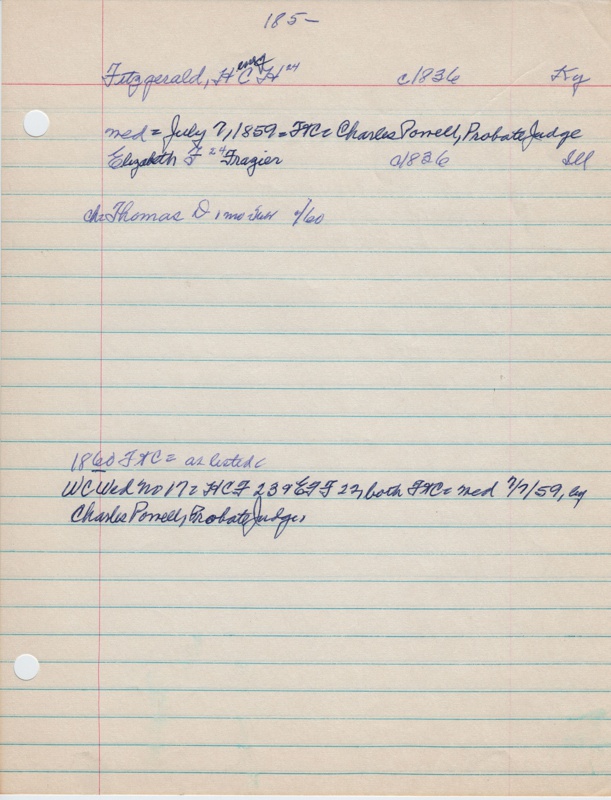 185-
Fitzgerald, H C H 24 c1836 Ky
Henry
med = July 7, 1859 = FXC = Charles Powell, Probate Judge
Elizabeth F 24 Frazier c1836 Ill
ch = Thomas D, 1/60
1860 FXC = as listed
WC Wed No 17 = HCF 23 & EFF 22, both FXC = med 7/7/59, by
Charles Powell, Probate Judge,